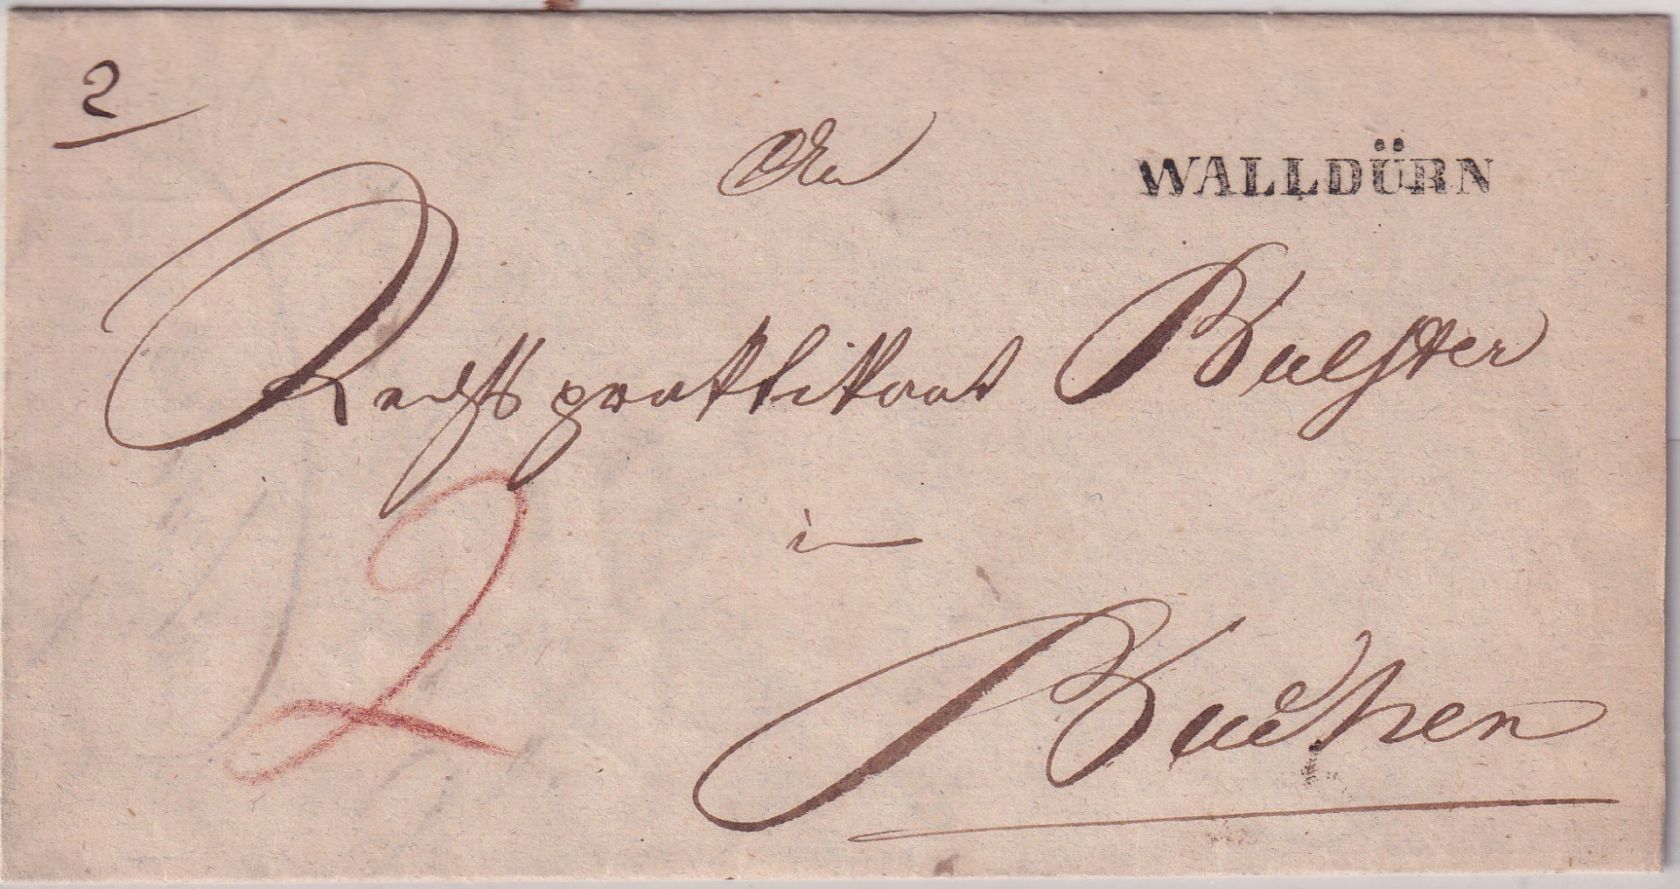 2
WALLDÜRN
An
Rechtspraktikant Bulster
in
2
Buchen